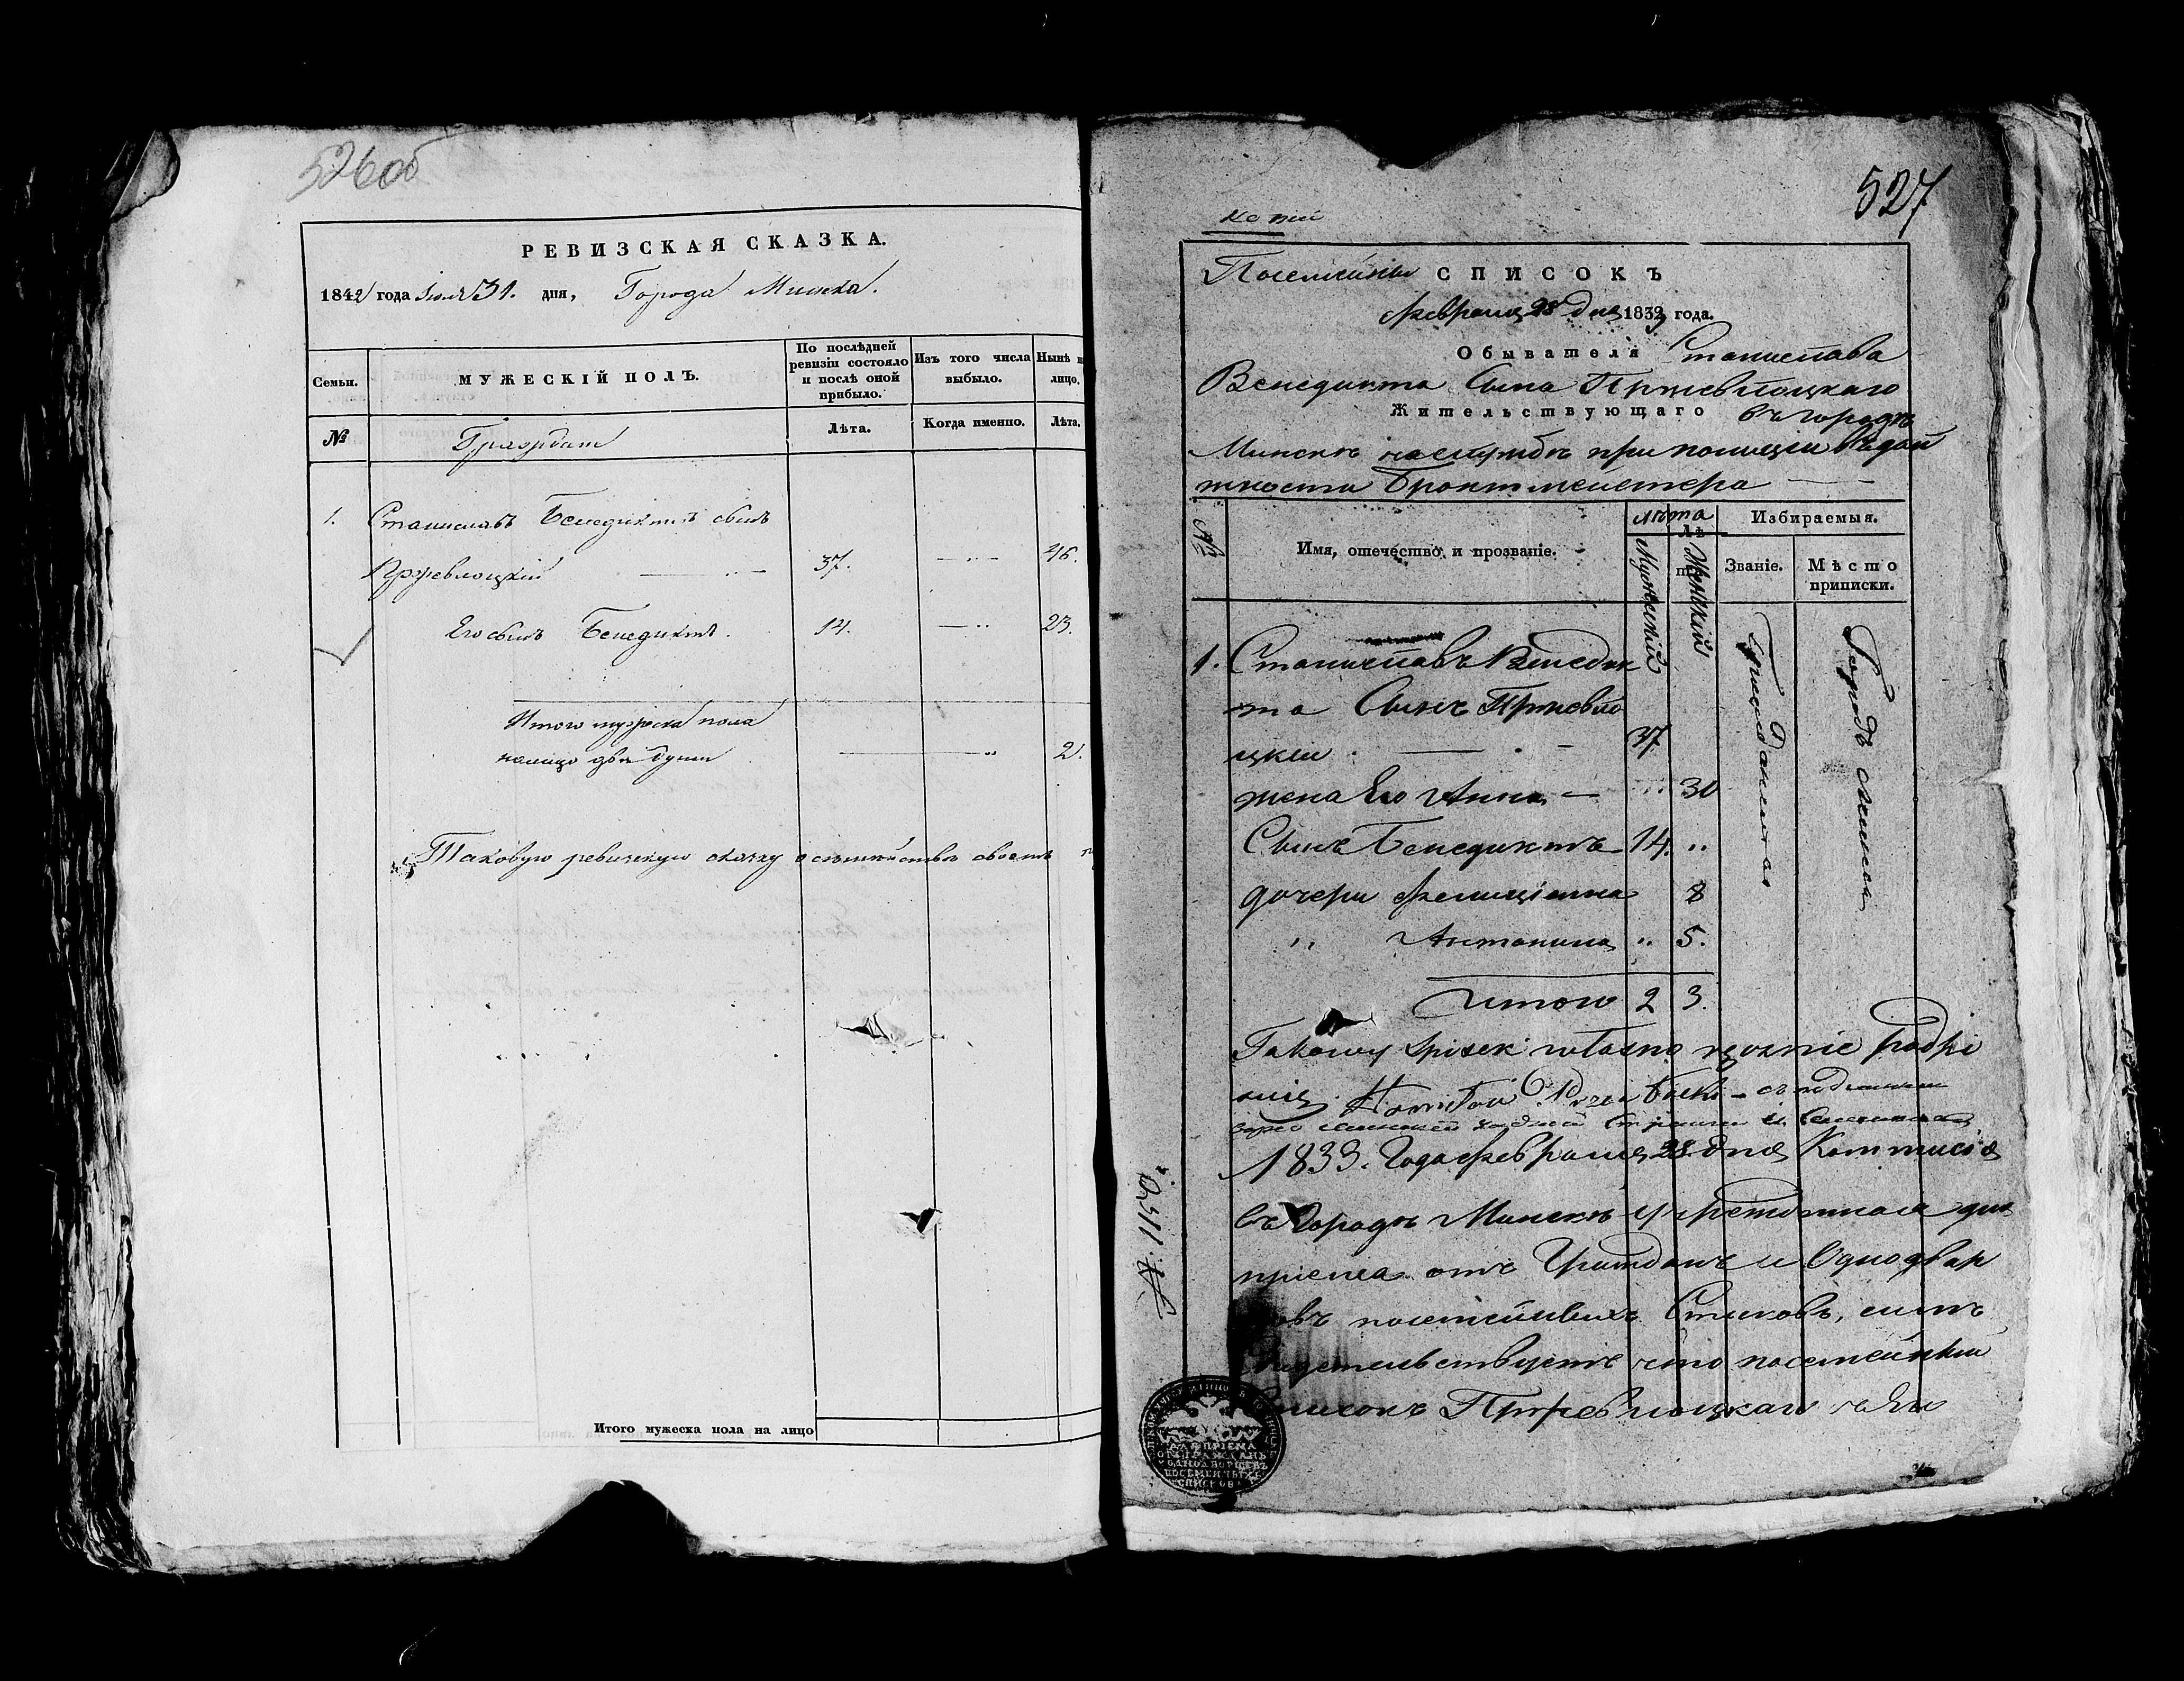 526об
РЕВИЗСКАЯ СКАЗКА.
1842 года Іюля 31. дня, Города Минска.
Семьи.
МУЖЕСКІЙ ПОЛЪ.
По послѣдней ревизіи состояло и послѣ оной прибыло.
Изъ того числа выбыло.
Нынѣ н лицо.
№
Граждан
Лѣта.
Когда именно.
Лѣта.
1. Станиславъ Бенедиктъ сынъ
Пржевлоцкій 37. 46.
Его сынъ Бенедиктъ. 14. 23.
Итого мужеска пола
налицо двѣ души 2.
Таковую ревизскую сказку о семействѣ своемъ
Итого мужеска пола на лицо
527
копія
Посемейный СПИСОКЪ
февраля 28 дня 1833 года.
Обывателя Станислава
Венедикта Сына Пржевлоцкаго
Жительствующаго въ городѣ
Минскѣ на службѣ при полиціи въ дол
жности Брантмейстера
№
Имя, отечество и прозваніе.
Лѣта
Мужескій
Женскій
Избираемыя.
Званіе.
Мѣсто приписки.
1. Станиславъ Венедик
та Сынъ Пржевло
цкій 37
жена Его Анна 30
Сынъ Бенедиктъ 14.
дочери Фелиціанна 8
" Антонина 5.
Итого 2 3.
Гражданина
Городъ Минск
Takowy Spisek własno ręcznie podpi
1833. Года февраля 28 дня Коммисія
въ городѣ Минскѣ учрежденная для
пріема отъ Гражданъ и Однодвор
овъ посемейныхъ Списковъ, симъ
идетельствуетъ что посемейный
писокъ Пржевлоцкаго
ДЛЯ ПРІЕМА
ОТЪ ГРАЖДАНЪ
ОДНОДВОРЦЕВЪ
ПОСЕМЕЙНЫХЪ
СПИСКОВЪ